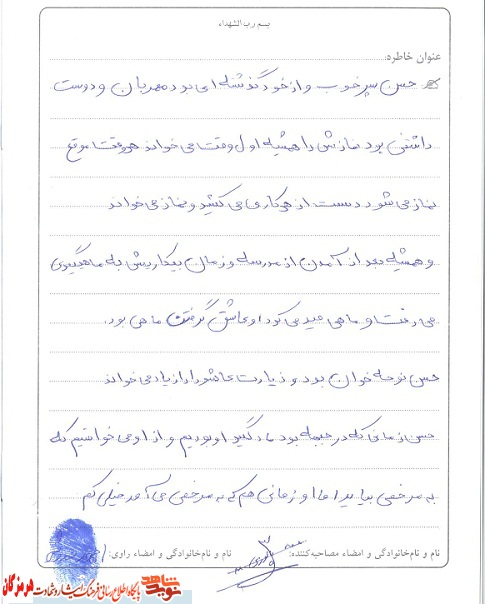 بسم رب الشهداء
عنوان خاطره:
حسن پسر خوب و از خود گذشته ای بود مهربان و دوست
داشتنی بود نمازش را همیشه اول وقت می خواند هر وقت موقع
نماز می شود دست از هر کاری می کشید و نماز می خواند
و همیشه بعد از آمدن از مدرسه و زمان بیکاریش به ماهیگیری
می رفت و ماهی صید می کرد او عاشق گرفتن ماهی بود.
حسن نوحه خوان بود و زیارت عاشورا را زیاد می خواند
حسن زمانی که در جبهه بود ما دلگیر او بودیم و از او می خواستیم که
به مرخصی بیاید اما او زمانی هم که به مرخصی می آمد خیلی کم
نام و نام‌خانوادگی و امضاء مصاحبه‌کننده:
نام و نام‌خانوادگی و امضاء راوی:
نوید شاهد
پایگاه اطلاع رسانی فرهنگ ایثار و شهادت هرمزگان